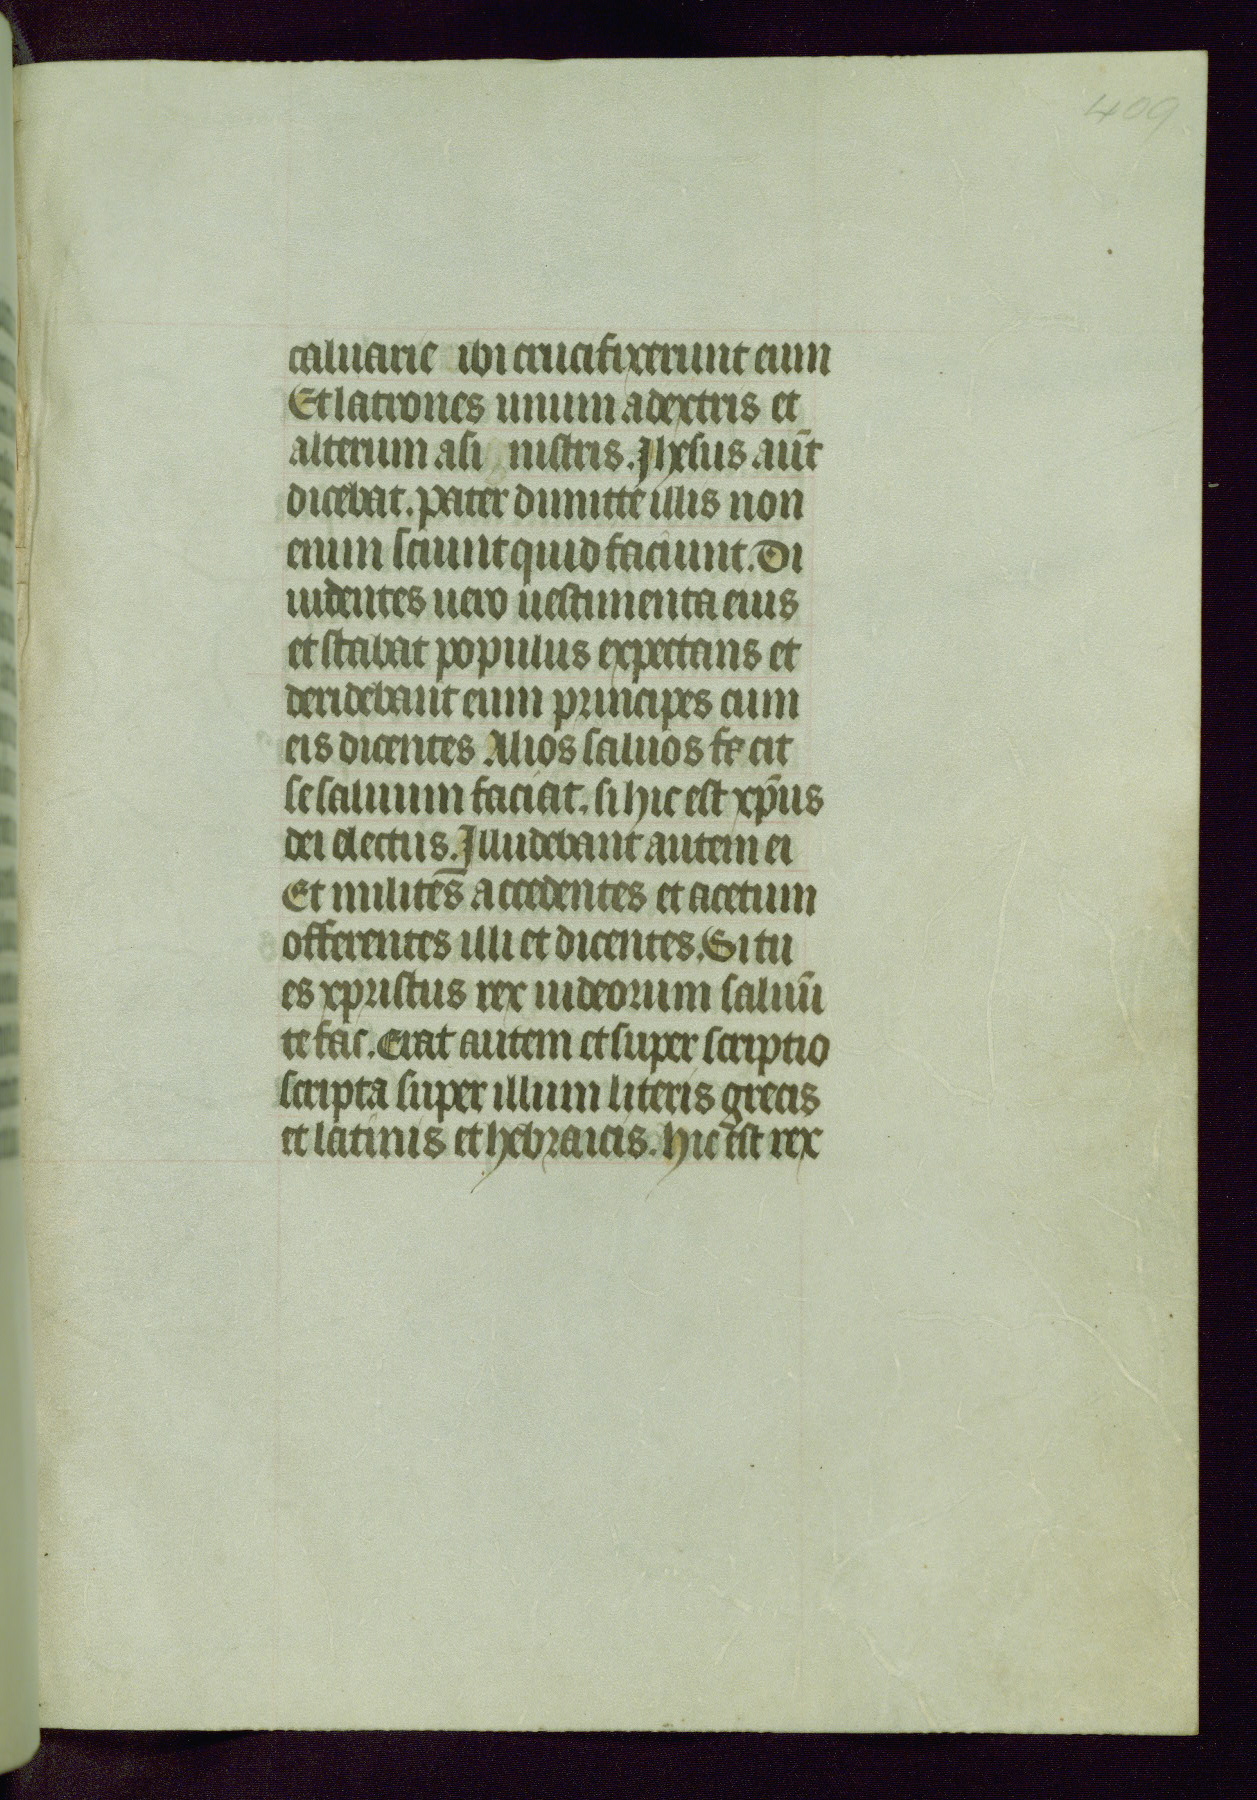 409
caluarie ibi crucifixerunt eum
Et latrones unum adextris et
alterum asi nistris. Jhesus aut̄
dicebat. pater dimitte illis non
enim sciunt quid faciunt. Di
uidentes uero uestimenta eius
et stabat populus expectans et
deridebant eum principes cum
eis dicentes Alios saluos fe cit
se saluum faciat. si hic est xp̄us
dei electus. Illudebant autem ei
Et milites accedentes et acetum
offerentes illi et dicentes. Si tu
es xpristus rex iudeorum saluū
te fac. Erat autem et super scriptio
scripta super illum literis grecis
et latinis et hebraicis. hic est rex